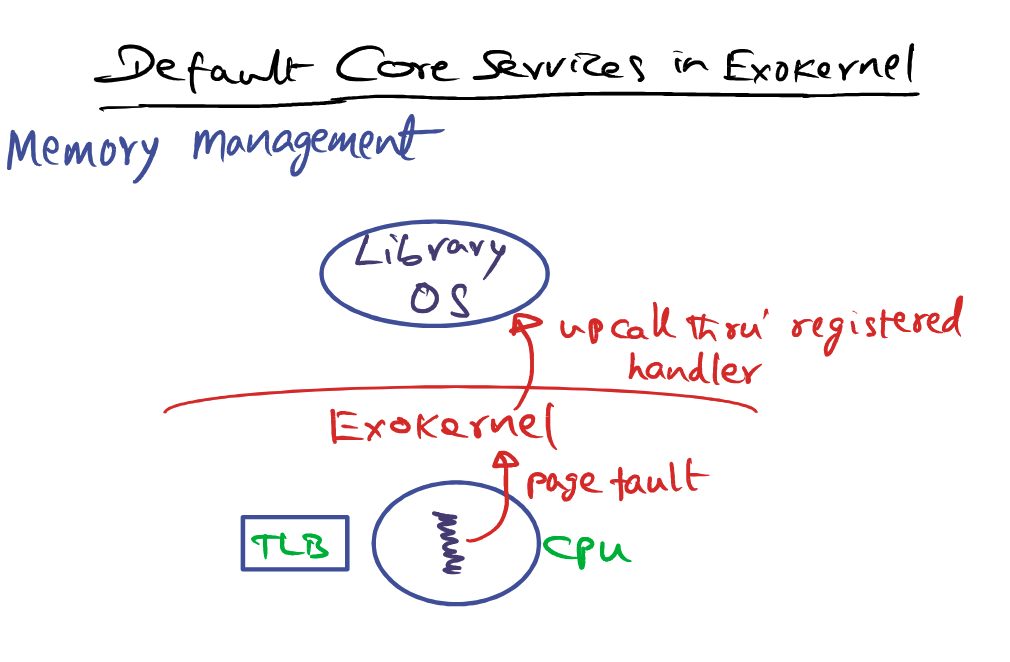 Default Core Services in Exokernel
Memory management
Library
OS
upcall thru' registered
handler
Exokernel
page fault
TLB
CPU